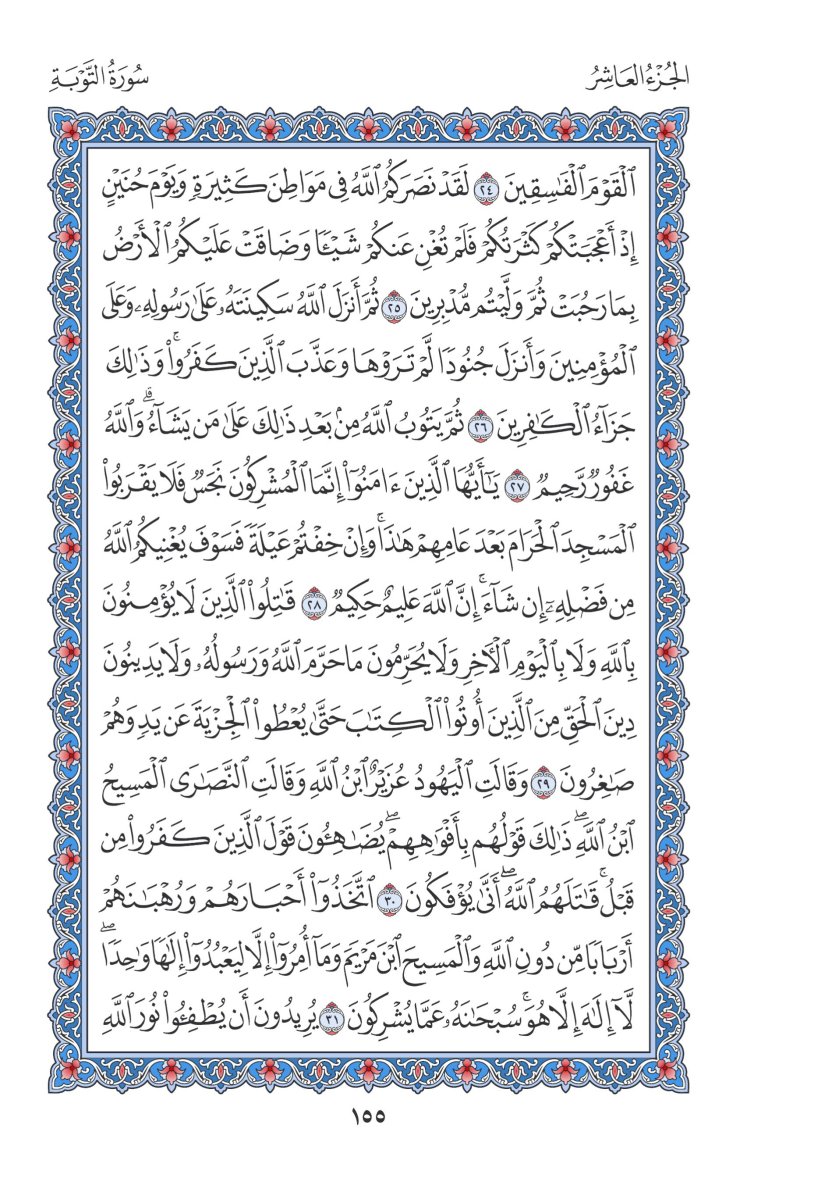 الجُزْءُ العَاشِرُ
سُورَةُ التَّوْبَةِ
ٱلْقَوْمَ ٱلْفَٰسِقِينَ ٢٤ لَقَدْ نَصَرَكُمُ ٱللَّهُ فِي مَوَاطِنَ كَثِيرَةٖ وَيَوْمَ حُنَيْنٍ
إِذْ أَعْجَبَتْكُمْ كَثْرَتُكُمْ فَلَمْ تُغْنِ عَنكُمْ شَيْـٔٗا وَضَاقَتْ عَلَيْكُمُ ٱلْأَرْضُ
بِمَا رَحُبَتْ ثُمَّ وَلَّيْتُم مُّدْبِرِينَ ٢٥ ثُمَّ أَنزَلَ ٱللَّهُ سَكِينَتَهُۥ عَلَىٰ رَسُولِهِۦ وَعَلَى
ٱلْمُؤْمِنِينَ وَأَنزَلَ جُنُودٗا لَّمْ تَرَوْهَا وَعَذَّبَ ٱلَّذِينَ كَفَرُواْۚ وَذَٰلِكَ
جَزَآءُ ٱلْكَٰفِرِينَ ٢٦ ثُمَّ يَتُوبُ ٱللَّهُ مِنۢ بَعْدِ ذَٰلِكَ عَلَىٰ مَن يَشَآءُۗ وَٱللَّهُ
غَفُورٞ رَّحِيمٞ ٢٧ يَٰٓأَيُّهَا ٱلَّذِينَ ءَامَنُوٓاْ إِنَّمَا ٱلْمُشْرِكُونَ نَجَسٞ فَلَا يَقْرَبُواْ
ٱلْمَسْجِدَ ٱلْحَرَامَ بَعْدَ عَامِهِمْ هَٰذَاۚ وَإِنْ خِفْتُمْ عَيْلَةٗ فَسَوْفَ يُغْنِيكُمُ ٱللَّهُ
مِن فَضْلِهِۦٓ إِن شَآءَۚ إِنَّ ٱللَّهَ عَلِيمٌ حَكِيمٞ ٢٨ قَٰتِلُواْ ٱلَّذِينَ لَا يُؤْمِنُونَ
بِٱللَّهِ وَلَا بِٱلْيَوْمِ ٱلْأٓخِرِ وَلَا يُحَرِّمُونَ مَا حَرَّمَ ٱللَّهُ وَرَسُولُهُۥ وَلَا يَدِينُونَ
دِينَ ٱلْحَقِّ مِنَ ٱلَّذِينَ أُوتُواْ ٱلْكِتَٰبَ حَتَّىٰ يُعْطُواْ ٱلْجِزْيَةَ عَن يَدٖ وَهُمْ
صَٰغِرُونَ ٢٩ وَقَالَتِ ٱلْيَهُودُ عُزَيْرٌ ٱبْنُ ٱللَّهِ وَقَالَتِ ٱلنَّصَٰرَى ٱلْمَسِيحُ
ٱبْنُ ٱللَّهِۖ ذَٰلِكَ قَوْلُهُم بِأَفْوَٰهِهِمْۖ يُضَٰهِـُٔونَ قَوْلَ ٱلَّذِينَ كَفَرُواْ مِن
قَبْلُۚ قَٰتَلَهُمُ ٱللَّهُۖ أَنَّىٰ يُؤْفَكُونَ ٣٠ ٱتَّخَذُوٓاْ أَحْبَارَهُمْ وَرُهْبَٰنَهُمْ
أَرْبَابٗا مِّن دُونِ ٱللَّهِ وَٱلْمَسِيحَ ٱبْنَ مَرْيَمَ وَمَآ أُمِرُوٓاْ إِلَّا لِيَعْبُدُوٓاْ إِلَٰهٗا وَٰحِدٗاۖ
لَّآ إِلَٰهَ إِلَّا هُوَۚ سُبْحَٰنَهُۥ عَمَّا يُشْرِكُونَ ٣١ يُرِيدُونَ أَن يُطْفِـُٔواْ نُورَ ٱللَّهِ
١٥٥